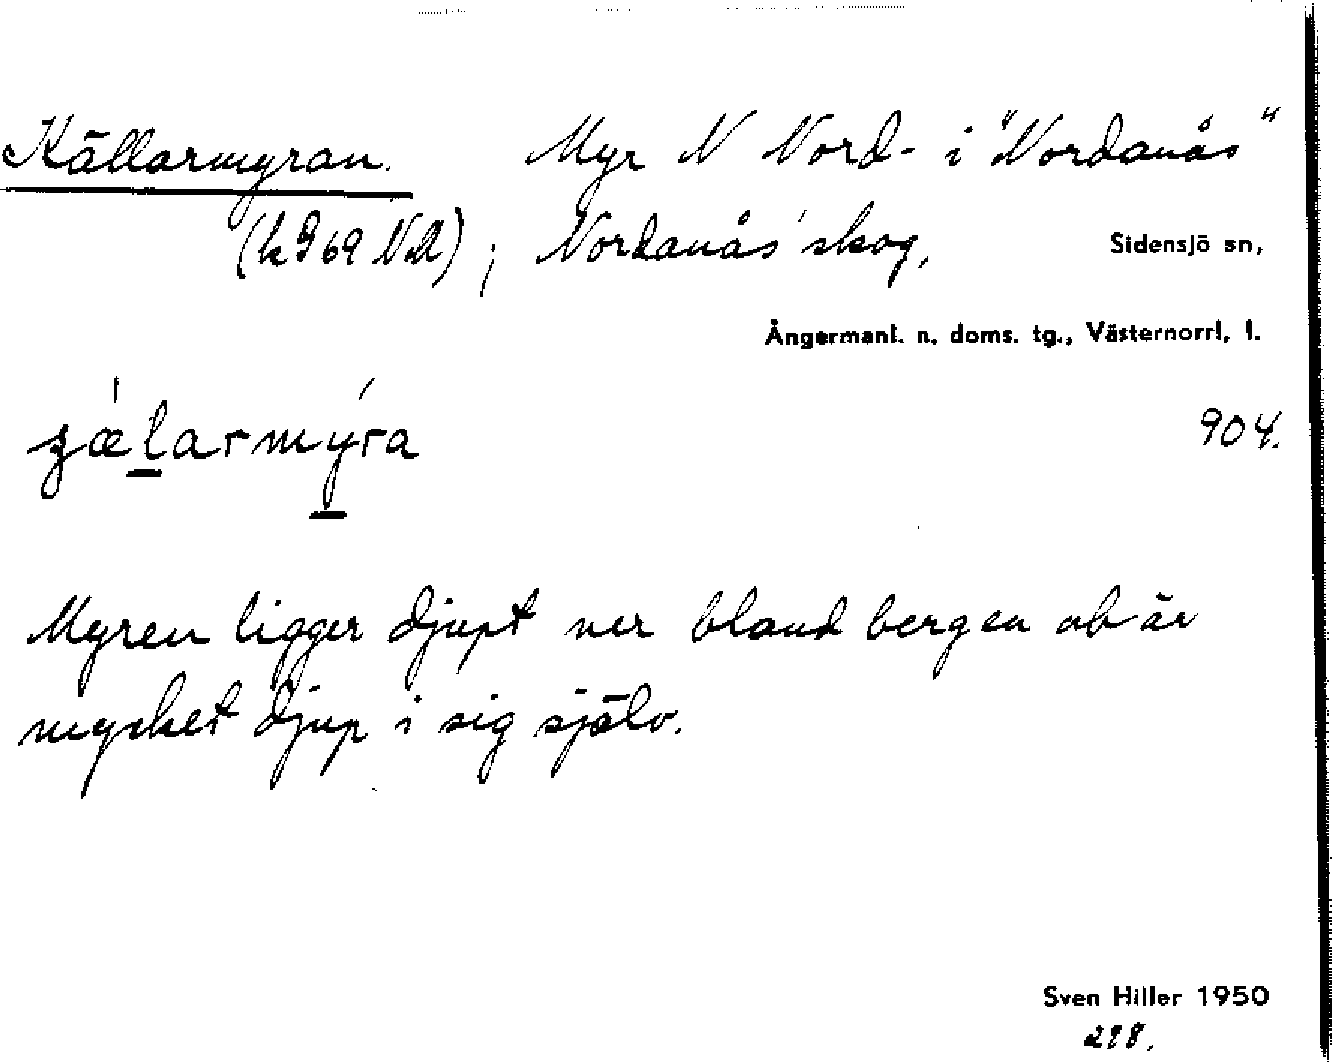 Källarmyran. Myr N Nord- i "Nordanås"
(k 9 69 NM); Nordanås' skog, Sidensjö sn,
Ångermanl. n. doms. tg., Västernorrl. l.
904.
Myren ligger djupt ner bland bergen ob är
mycket djup i sig själv.
Sven Hiller 1950